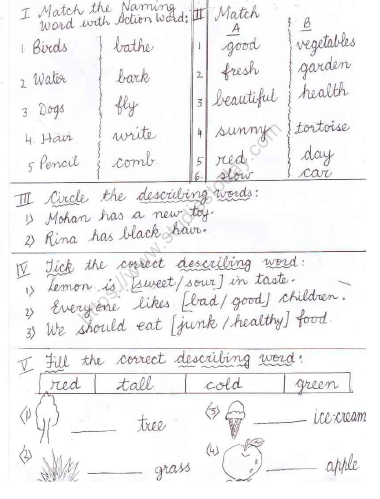 I Match the Naming
Word with Action Word:
1 Birds bathe
2 Water bark
3 Dogs fly
4. Hair write
5 Pencil comb
II Match
A B
1 good vegetables
2 fresh garden
3 beautiful health
4 sunny tortoise
5 red day
6. slow car
III Circle the describing words:
1) Mohan has a new toy.
2) Rina has black hair.
IV Tick the correct describing word:
1) Lemon is [sweet/sour] in taste.
2) Everyone likes [bad/good] children.
3) We should eat [junk/healthy] food.
V Fill the correct describing word:
red tall cold green
(1) ______ tree
(2) ______ grass
(3) ______ ice-cream
(4) ______ apple